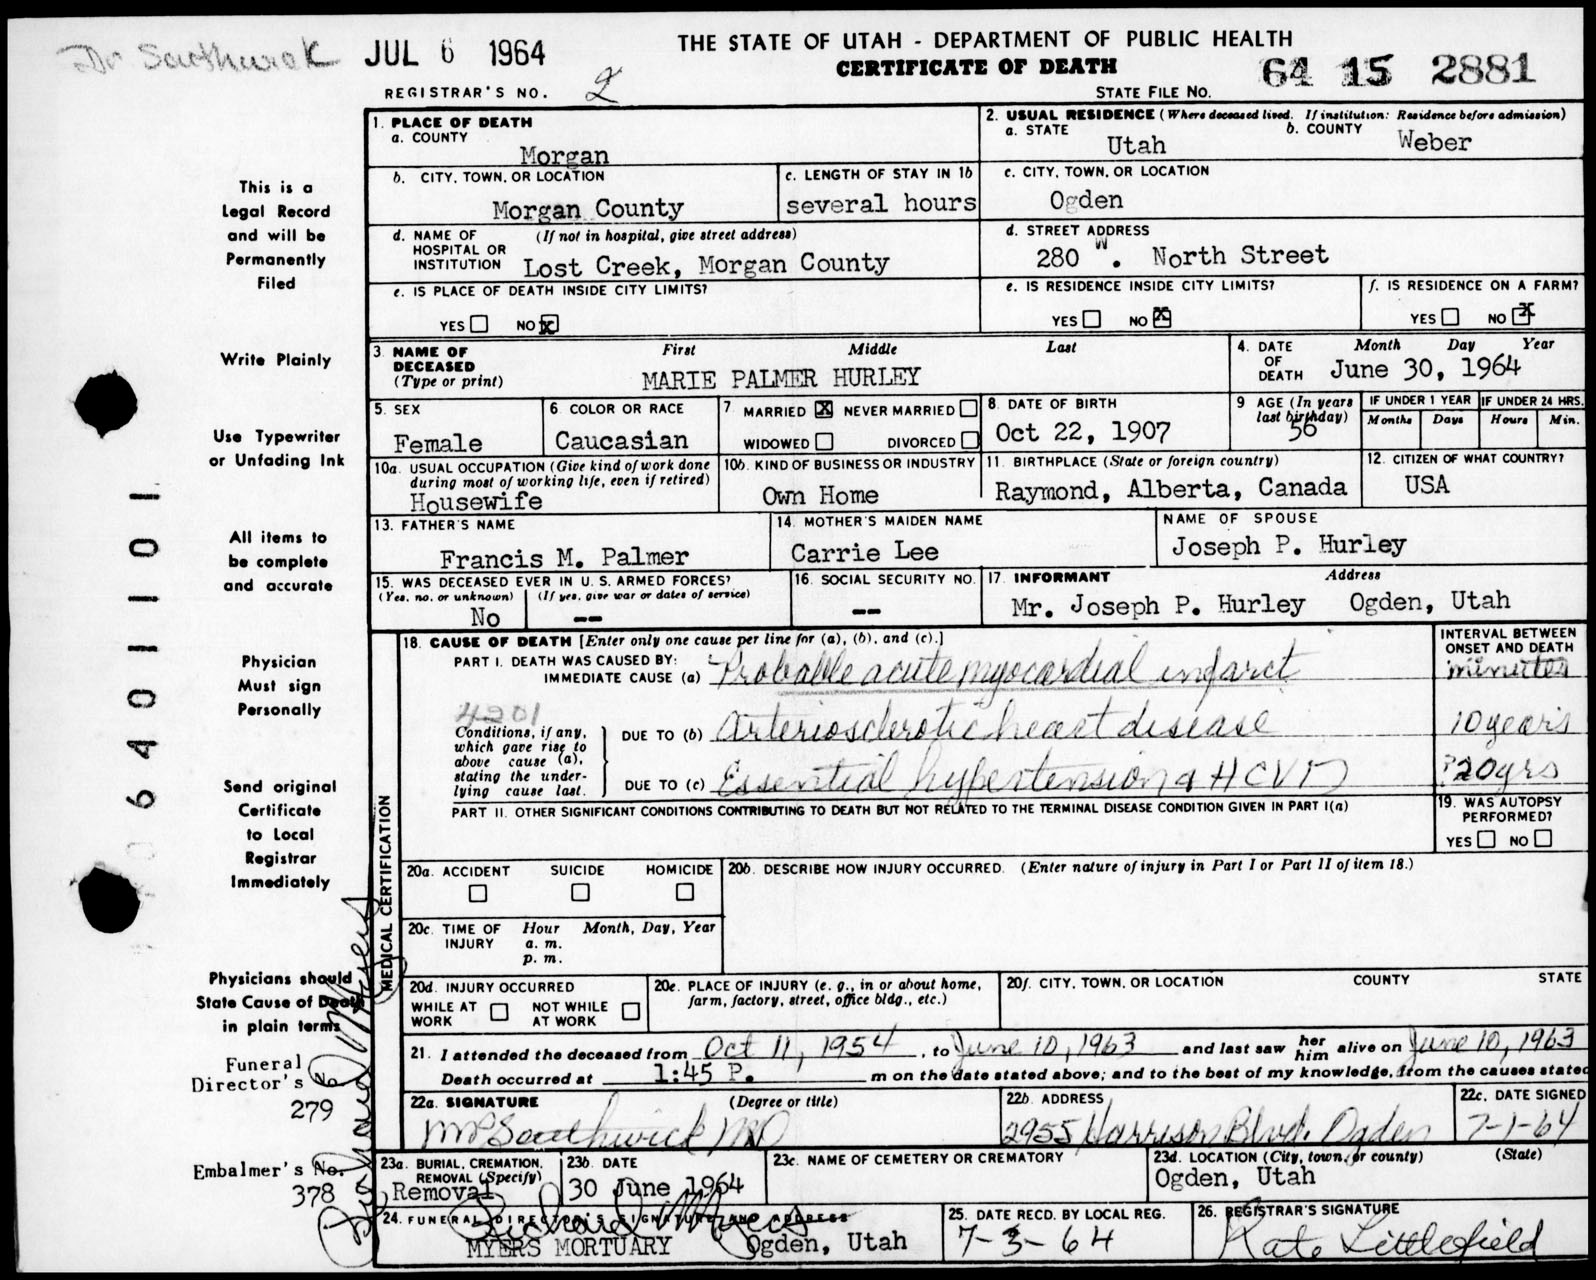 Dr Southwick JUL 6 1964 THE STATE OF UTAH - DEPARTMENT OF PUBLIC HEALTH
CERTIFICATE OF DEATH 64 15 2881
REGISTRAR'S NO. 2 STATE FILE NO.
1. PLACE OF DEATH
a. COUNTY
Morgan
2. USUAL RESIDENCE (Where deceased lived. If institution: Residence before admission)
a. STATE b. COUNTY
Utah Weber
b. CITY, TOWN, OR LOCATION
Morgan County
c. LENGTH OF STAY IN 1b
several hours
c. CITY, TOWN, OR LOCATION
Ogden
d. NAME OF (If not in hospital, give street address)
HOSPITAL OR
INSTITUTION Lost Creek, Morgan County
d. STREET ADDRESS
280 W. North Street
e. IS PLACE OF DEATH INSIDE CITY LIMITS?
YES NO X
e. IS RESIDENCE INSIDE CITY LIMITS?
YES NO X
f. IS RESIDENCE ON A FARM?
YES NO X
3. NAME OF DECEASED
(Type or print)
First Middle Last
MARIE PALMER HURLEY
4. DATE OF DEATH
Month Day Year
June 30, 1964
5. SEX
Female
6. COLOR OR RACE
Caucasian
7. MARRIED X NEVER MARRIED
WIDOWED DIVORCED
8. DATE OF BIRTH
Oct 22, 1907
9 AGE (In years
last birthday)
56
IF UNDER 1 YEAR IF UNDER 24 HRS.
Months Days Hours Min.
10a. USUAL OCCUPATION (Give kind of work done
during most of working life, even if retired)
Housewife
10b. KIND OF BUSINESS OR INDUSTRY
Own Home
11. BIRTHPLACE (State or foreign country)
Raymond, Alberta, Canada
12. CITIZEN OF WHAT COUNTRY?
USA
13. FATHER'S NAME
Francis M. Palmer
14. MOTHER'S MAIDEN NAME
Carrie Lee
NAME OF SPOUSE
Joseph P. Hurley
15. WAS DECEASED EVER IN U. S. ARMED FORCES?
(Yes, no, or unknown) (If yes, give war or dates of service)
No --
16. SOCIAL SECURITY NO.
--
17. INFORMANT Address
Mr. Joseph P. Hurley Ogden, Utah
18. CAUSE OF DEATH [Enter only one cause per line for (a), (b), and (c).]
INTERVAL BETWEEN
ONSET AND DEATH
PART I. DEATH WAS CAUSED BY:
IMMEDIATE CAUSE (a) Probable acute myocardial infarct minutes
4201
Conditions, if any,
which gave rise to
above cause (a),
stating the under-
lying cause last.
DUE TO (b) Arteriosclerotic heart disease 10 years
DUE TO (c) Essential hypertension & HCVD ?20 yrs
PART II. OTHER SIGNIFICANT CONDITIONS CONTRIBUTING TO DEATH BUT NOT RELATED TO THE TERMINAL DISEASE CONDITION GIVEN IN PART I(a)
19. WAS AUTOPSY
PERFORMED?
YES NO
20a. ACCIDENT SUICIDE HOMICIDE
20b. DESCRIBE HOW INJURY OCCURRED. (Enter nature of injury in Part I or Part II of item 18.)
20c. TIME OF INJURY
Hour Month, Day, Year
a. m.
p. m.
20d. INJURY OCCURRED
WHILE AT WORK NOT WHILE AT WORK
20e. PLACE OF INJURY (e. g., in or about home,
farm, factory, street, office bldg., etc.)
20f. CITY, TOWN, OR LOCATION COUNTY STATE
21. I attended the deceased from Oct 11, 1954, to June 10, 1963 and last saw her him alive on June 10, 1963
Death occurred at 1:45 P. m on the date stated above; and to the best of my knowledge, from the causes stated
22a. SIGNATURE (Degree or title)
MP Southwick MD
22b. ADDRESS
2955 Harrison Blvd. Ogden
22c. DATE SIGNED
7-1-64
23a. BURIAL, CREMATION,
REMOVAL (Specify)
Removal
23b. DATE
30 June 1964
23c. NAME OF CEMETERY OR CREMATORY
23d. LOCATION (City, town, or county) (State)
Ogden, Utah
24. FUNERAL DIRECTOR'S SIGNATURE AND ADDRESS
Richard M Myers
MYERS MORTUARY Ogden, Utah
25. DATE RECD. BY LOCAL REG.
7-3-64
26. REGISTRAR'S SIGNATURE
Kate Littlefield
MEDICAL CERTIFICATION
This is a
Legal Record
and will be
Permanently
Filed
Write Plainly
Use Typewriter
or Unfading Ink
All items to
be complete
and accurate
Physician
Must sign
Personally
Send original
Certificate
to Local
Registrar
Immediately
Physicians should
State Cause of Death
in plain terms
Funeral
Director's No
279
Embalmer's No.
378
Richard M Myers
0 6 4 0 1 1 0 1